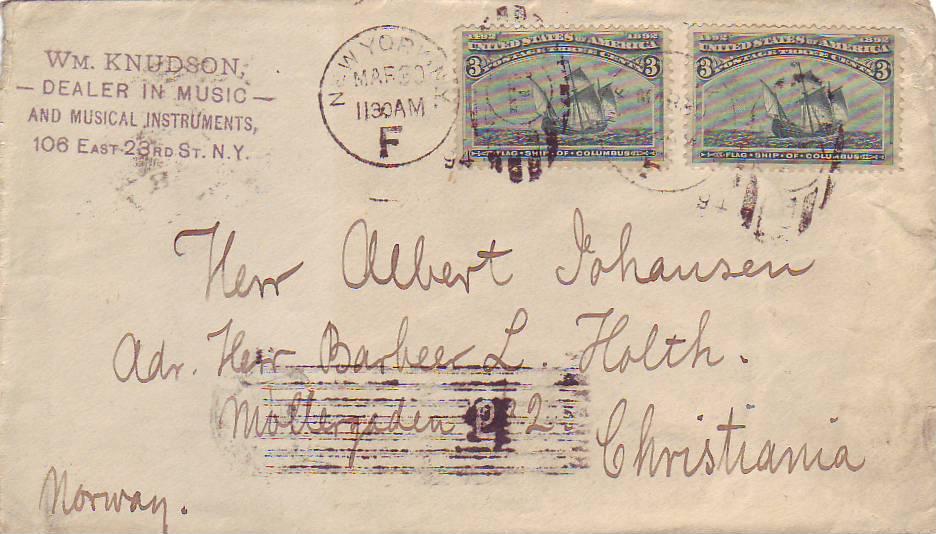 WM. KNUDSON,
— DEALER IN MUSIC —
AND MUSICAL INSTRUMENTS,
106 EAST 23RD ST. N.Y.
NEW YORK, N.Y.
MAR 30
1130AM
F
94
1492 1892
UNITED STATES OF AMERICA
POSTAGE THREE CENTS
3 3
FLAG·SHIP·OF·COLUMBUS
1492 1892
UNITED STATES OF AMERICA
POSTAGE THREE CENTS
3 3
FLAG·SHIP·OF·COLUMBUS
94
Herr Albert Johansen
Adr. Herr Barbeer L. Holth.
Möllergaden
Christiania
Norway.